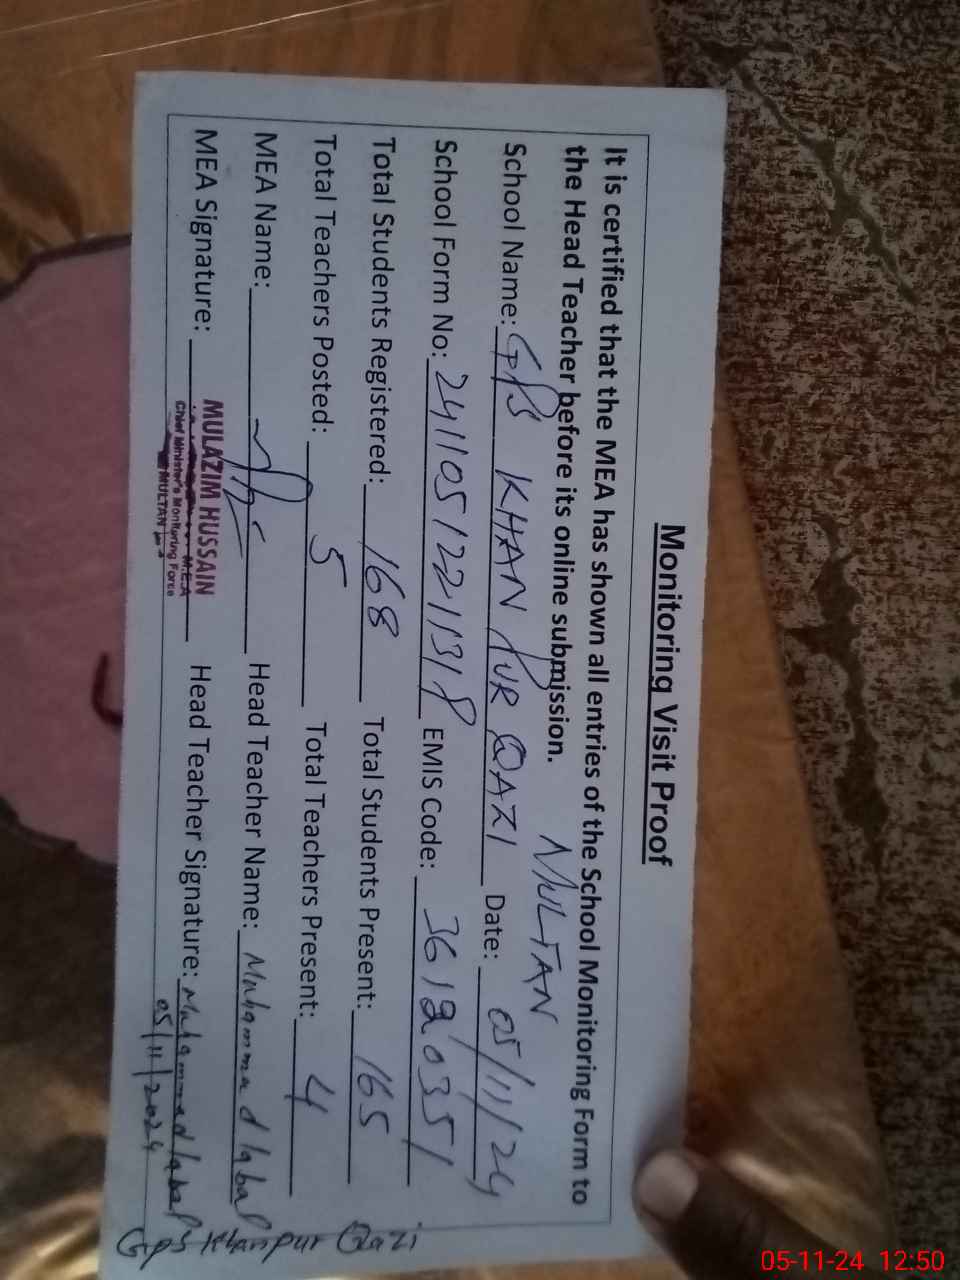 Monitoring Visit Proof
It is certified that the MEA has shown all entries of the School Monitoring Form to
the Head Teacher before its online submission.
MULTAN
School Name: GPS KHAN PUR QAZI Date: 05/11/24
School Form No: EMIS Code: 36120351
Total Students Registered: 168 Total Students Present: 165
Total Teachers Posted: 5 Total Teachers Present: 4
MEA Name: Head Teacher Name: Muhammad Iqbal
MEA Signature: Head Teacher Signature: Muhammad Iqbal
MULAZIM HUSSAIN
M.E.A
Chief Minister's Monitoring Force
MULTAN
05/11/2024
GPS Khanpur Qazi
05-11-24 12:50